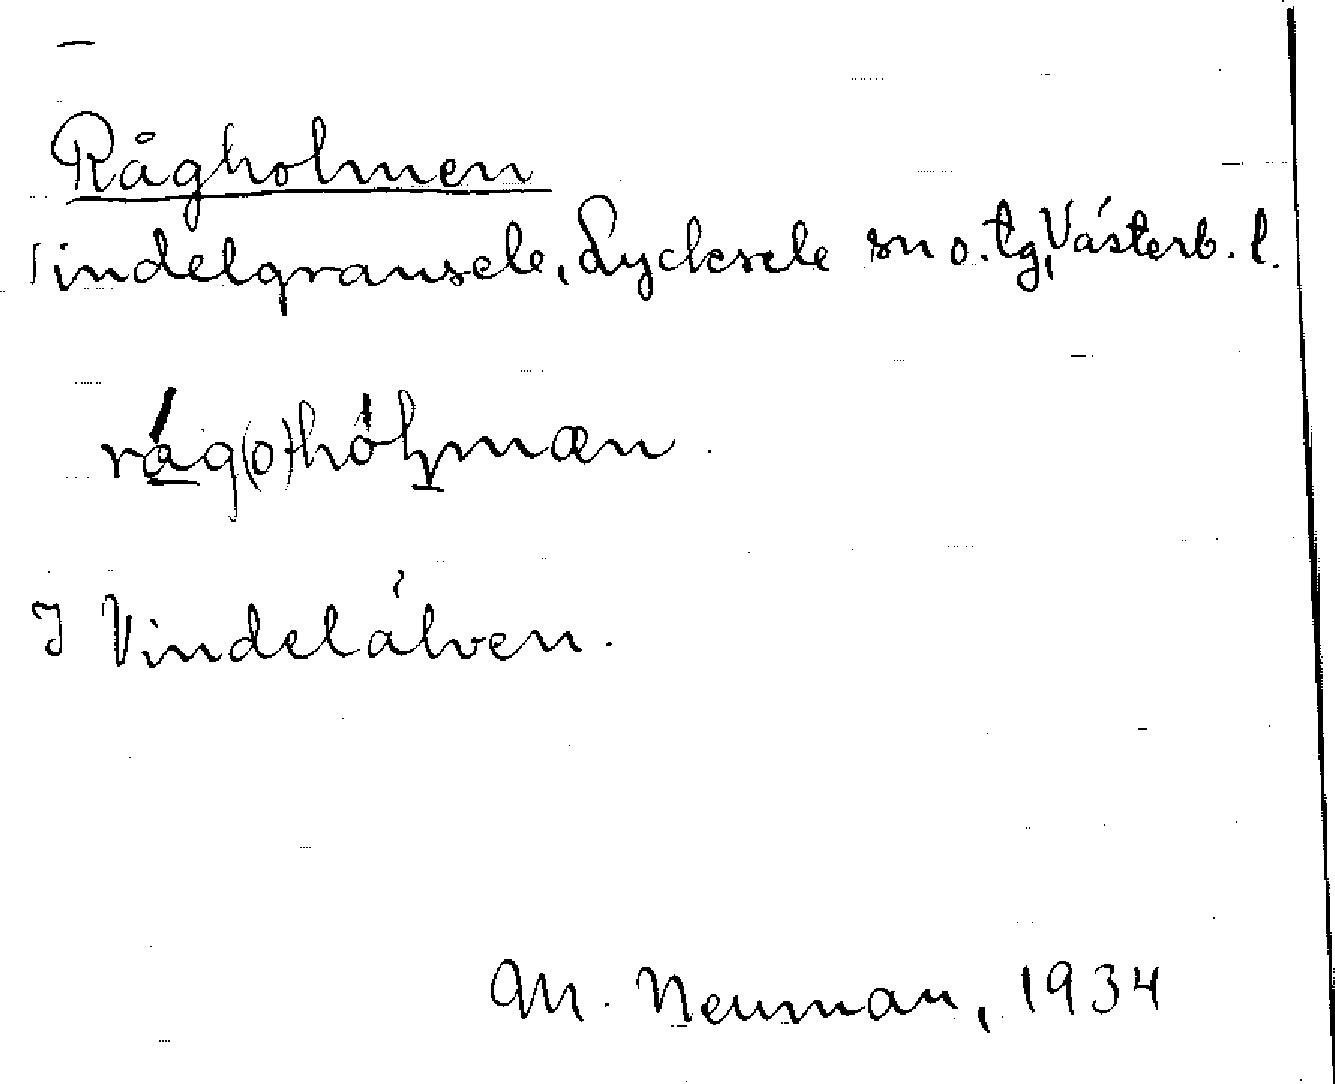 Rågholmen
Vindelgransele, Lycksele sn o. tg, Västerb. l.
råg(o)hólmæn.
I Vindelälven.
M. Neuman, 1934